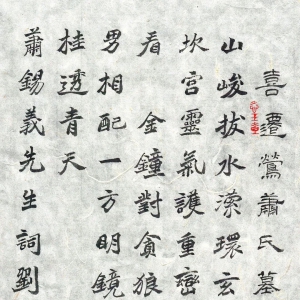 喜遷鶯蕭氏墓
山峻拔水濚環玄
坎宮靈氣護重巒
看金鐘對貪狼
男相配一方明鏡
桂透青天
蕭錫義先生詞劉